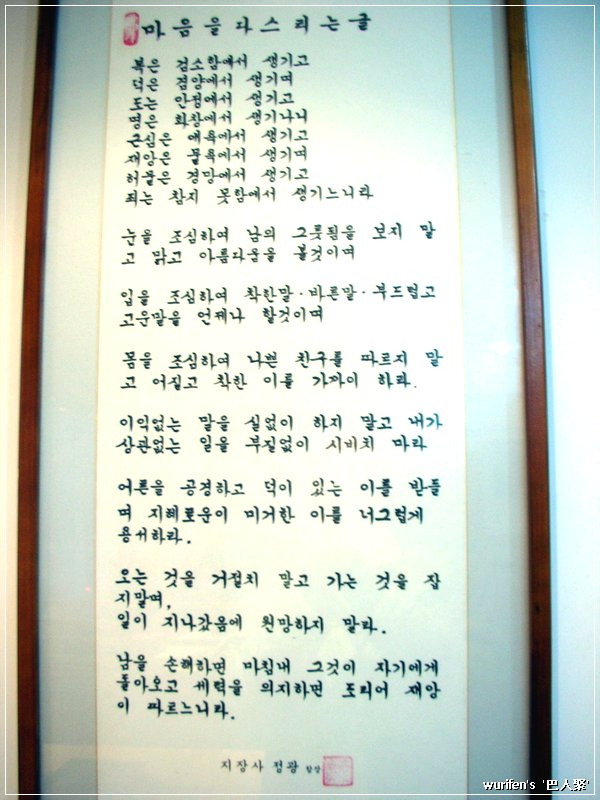 마음을 다스리는 글
복은 검소함에서 생기고
덕은 겸양에서 생기며
도는 안정에서 생기고
명은 화창에서 생기나니
근심은 애욕에서 생기고
재앙은 물욕에서 생기며
허물은 경망에서 생기고
죄는 참지 못함에서 생기느니라
눈을 조심하여 남의 그릇됨을 보지 말
고 맑고 아름다움을 볼것이며
입을 조심하여 착한말·바른말·부드럽고
고운말을 언제나 할것이며
몸을 조심하여 나쁜 친구를 따르지 말
고 어질고 착한 이를 가까이 하라.
이익없는 말을 실없이 하지 말고 내가
상관없는 일을 부질없이 시비치 마라
어른을 공경하고 덕이 있는 이를 받들
며 지혜로운이 미거한 이를 너그럽게
용서하라.
오는 것을 거절치 말고 가는 것을 잡
지말며,
일이 지나갔음에 원망하지 말라.
남을 손해하면 마침내 그것이 자기에게
돌아오고 세력을 의지하면 도리어 재앙
이 따르느니라.
지장사 정광 합장
wurifen's '巴人聚'